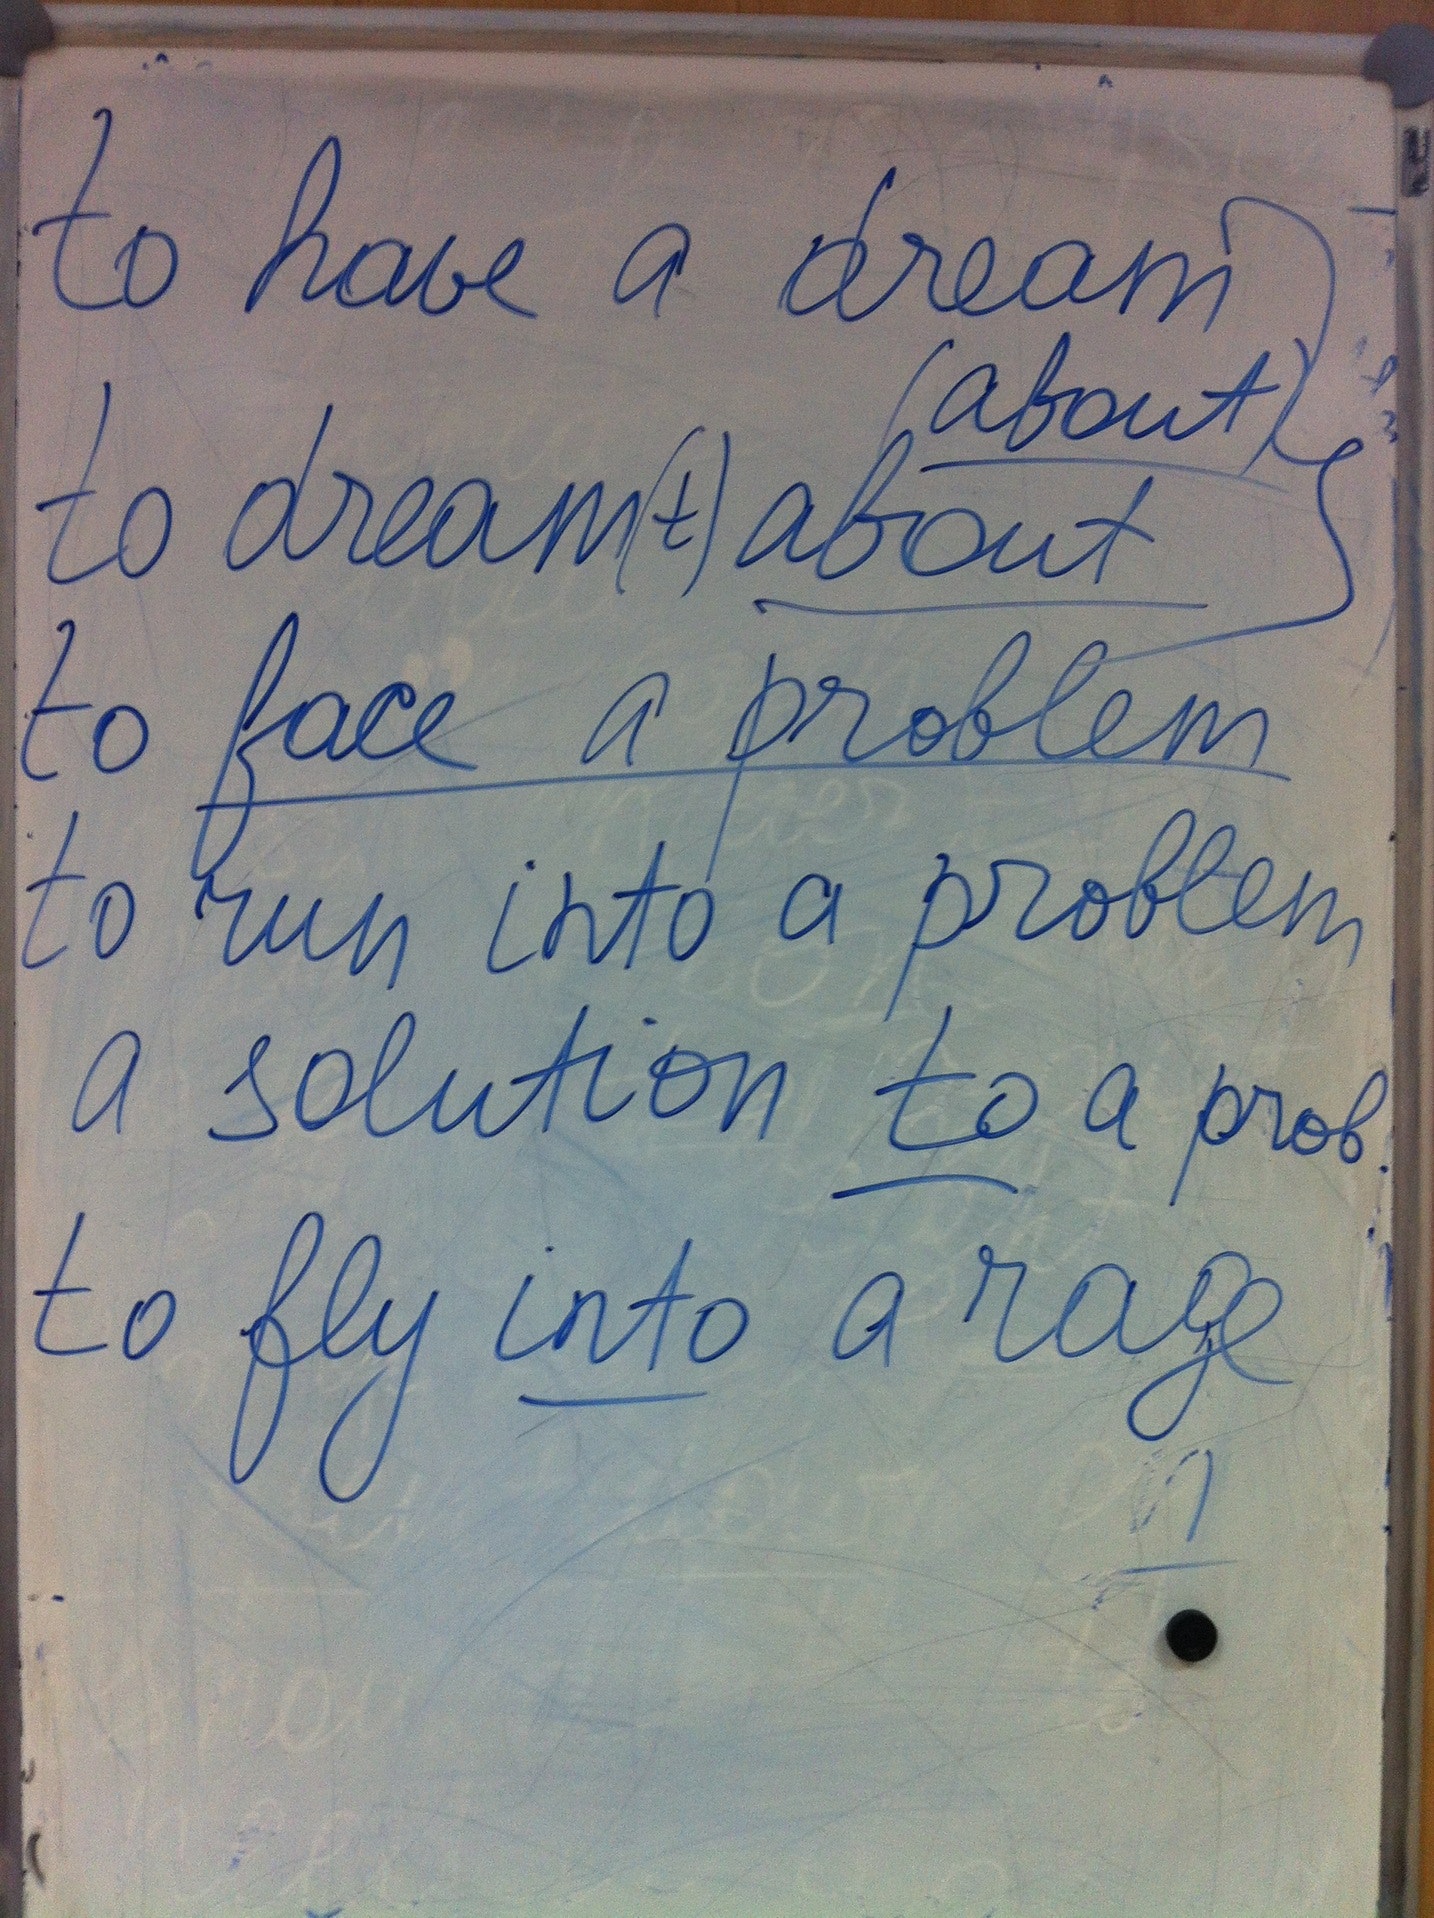 to have a dream
(about)
to dream(t) about
to face a problem
to run into a problem
a solution to a prob.
to fly into a rage